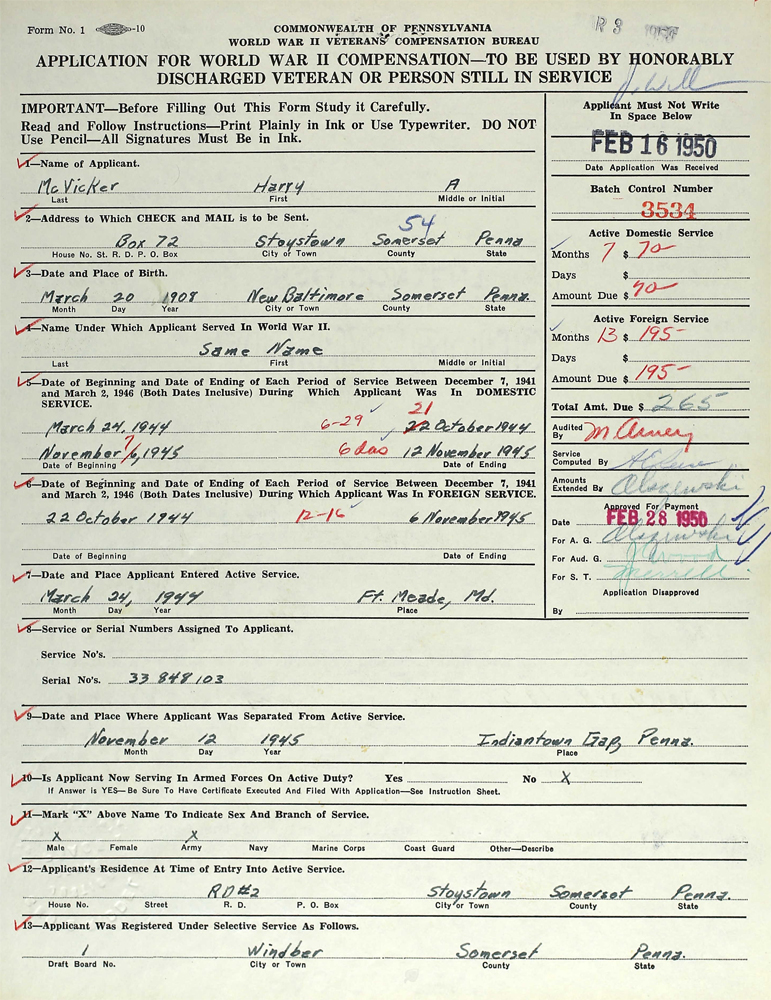 Form No. 1 -10
COMMONWEALTH OF PENNSYLVANIA
WORLD WAR II VETERANS' COMPENSATION BUREAU
R 3
APPLICATION FOR WORLD WAR II COMPENSATION—TO BE USED BY HONORABLY
DISCHARGED VETERAN OR PERSON STILL IN SERVICE
IMPORTANT—Before Filling Out This Form Study it Carefully.
Read and Follow Instructions—Print Plainly in Ink or Use Typewriter. DO NOT
Use Pencil—All Signatures Must Be in Ink.
1—Name of Applicant.
McVicker Harry A
Last First Middle or Initial
2—Address to Which CHECK and MAIL is to be Sent.
54
Box 72 Stoystown Somerset Penna
House No. St. R. D. P. O. Box City or Town County State
3—Date and Place of Birth.
March 20 1908 New Baltimore Somerset Penna.
Month Day Year City or Town County State
4—Name Under Which Applicant Served In World War II.
Same Name
Last First Middle or Initial
5—Date of Beginning and Date of Ending of Each Period of Service Between December 7, 1941
and March 2, 1946 (Both Dates Inclusive) During Which Applicant Was In DOMESTIC
SERVICE.
21
March 24, 1944 6-29 22 October 1944
7
November 6, 1945 6 das 12 November 1945
Date of Beginning Date of Ending
6—Date of Beginning and Date of Ending of Each Period of Service Between December 7, 1941
and March 2, 1946 (Both Dates Inclusive) During Which Applicant Was In FOREIGN SERVICE.
22 October 1944 12-16 6 November 1945
Date of Beginning Date of Ending
7—Date and Place Applicant Entered Active Service.
March 24, 1944 Ft. Meade, Md.
Month Day Year Place
8—Service or Serial Numbers Assigned To Applicant.
Service No's.
Serial No's. 33 848 103
9—Date and Place Where Applicant Was Separated From Active Service.
November 12 1945 Indiantown Gap, Penna.
Month Day Year Place
10—Is Applicant Now Serving In Armed Forces On Active Duty? Yes No X
If Answer is YES—Be Sure To Have Certificate Executed And Filed With Application—See Instruction Sheet.
11—Mark “X” Above Name To Indicate Sex And Branch of Service.
X X
Male Female Army Navy Marine Corps Coast Guard Other—Describe
12—Applicant's Residence At Time of Entry Into Active Service.
RD#2 Stoystown Somerset Penna.
House No. Street R. D. P. O. Box City or Town County State
13—Applicant Was Registered Under Selective Service As Follows.
1 Windber Somerset Penna.
Draft Board No. City or Town County State
Applicant Must Not Write
In Space Below
FEB 16 1950
Date Application Was Received
Batch Control Number
3534
Active Domestic Service
Months 7 $ 70-
Days $
Amount Due $ 70-
Active Foreign Service
Months 13 $ 195-
Days $
Amount Due $ 195-
Total Amt. Due $ 265
Audited
By
Service
Computed By
Amounts
Extended By Olszewski
Approved For Payment
Date FEB 28 1950
For A. G. Olszewski
For Aud. G.
For S. T.
Application Disapproved
By